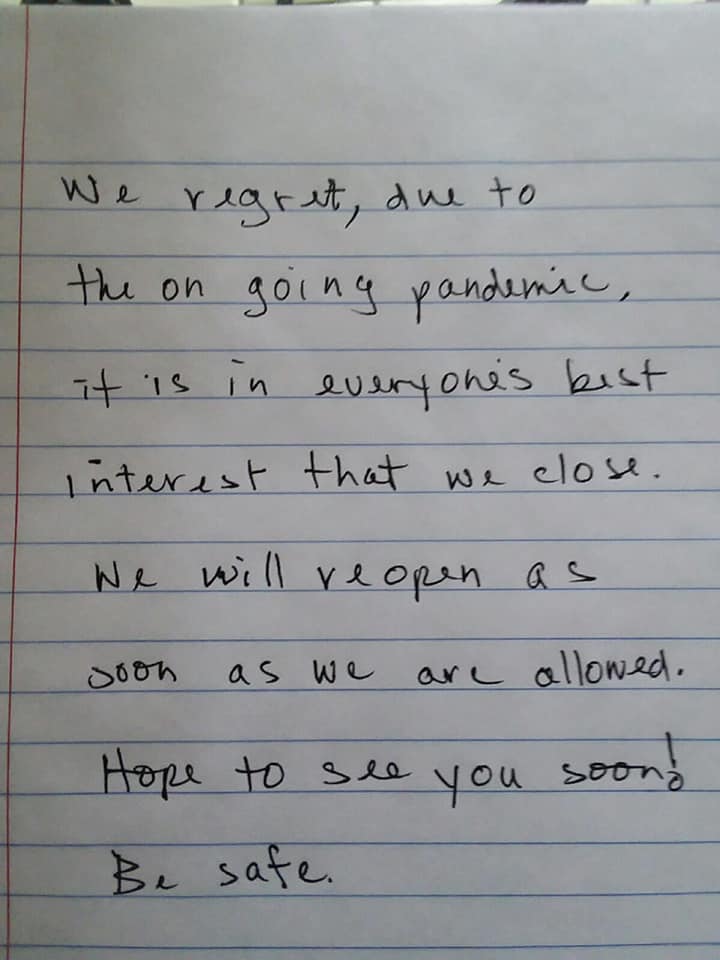 We regret, due to
the on going pandemic,
it is in everyone's best
interest that we close.
We will reopen as
soon as we are allowed.
Hope to see you soon!
Be safe.